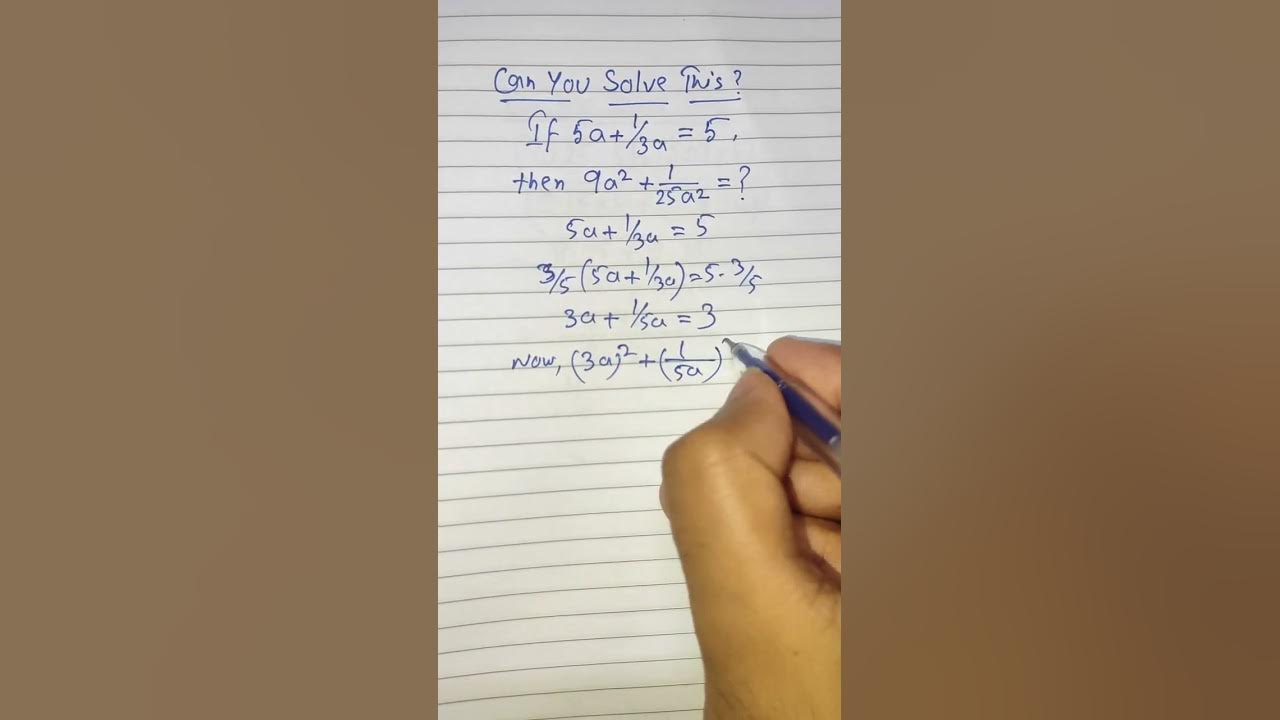 Can You Solve This?
If 5a+1/3a = 5,
then 9a² + 1/25a² = ?
5a + 1/3a = 5
3/5 (5a+1/3a) = 5 · 3/5
3a + 1/5a = 3
Now, (3a)² + (1/5a)